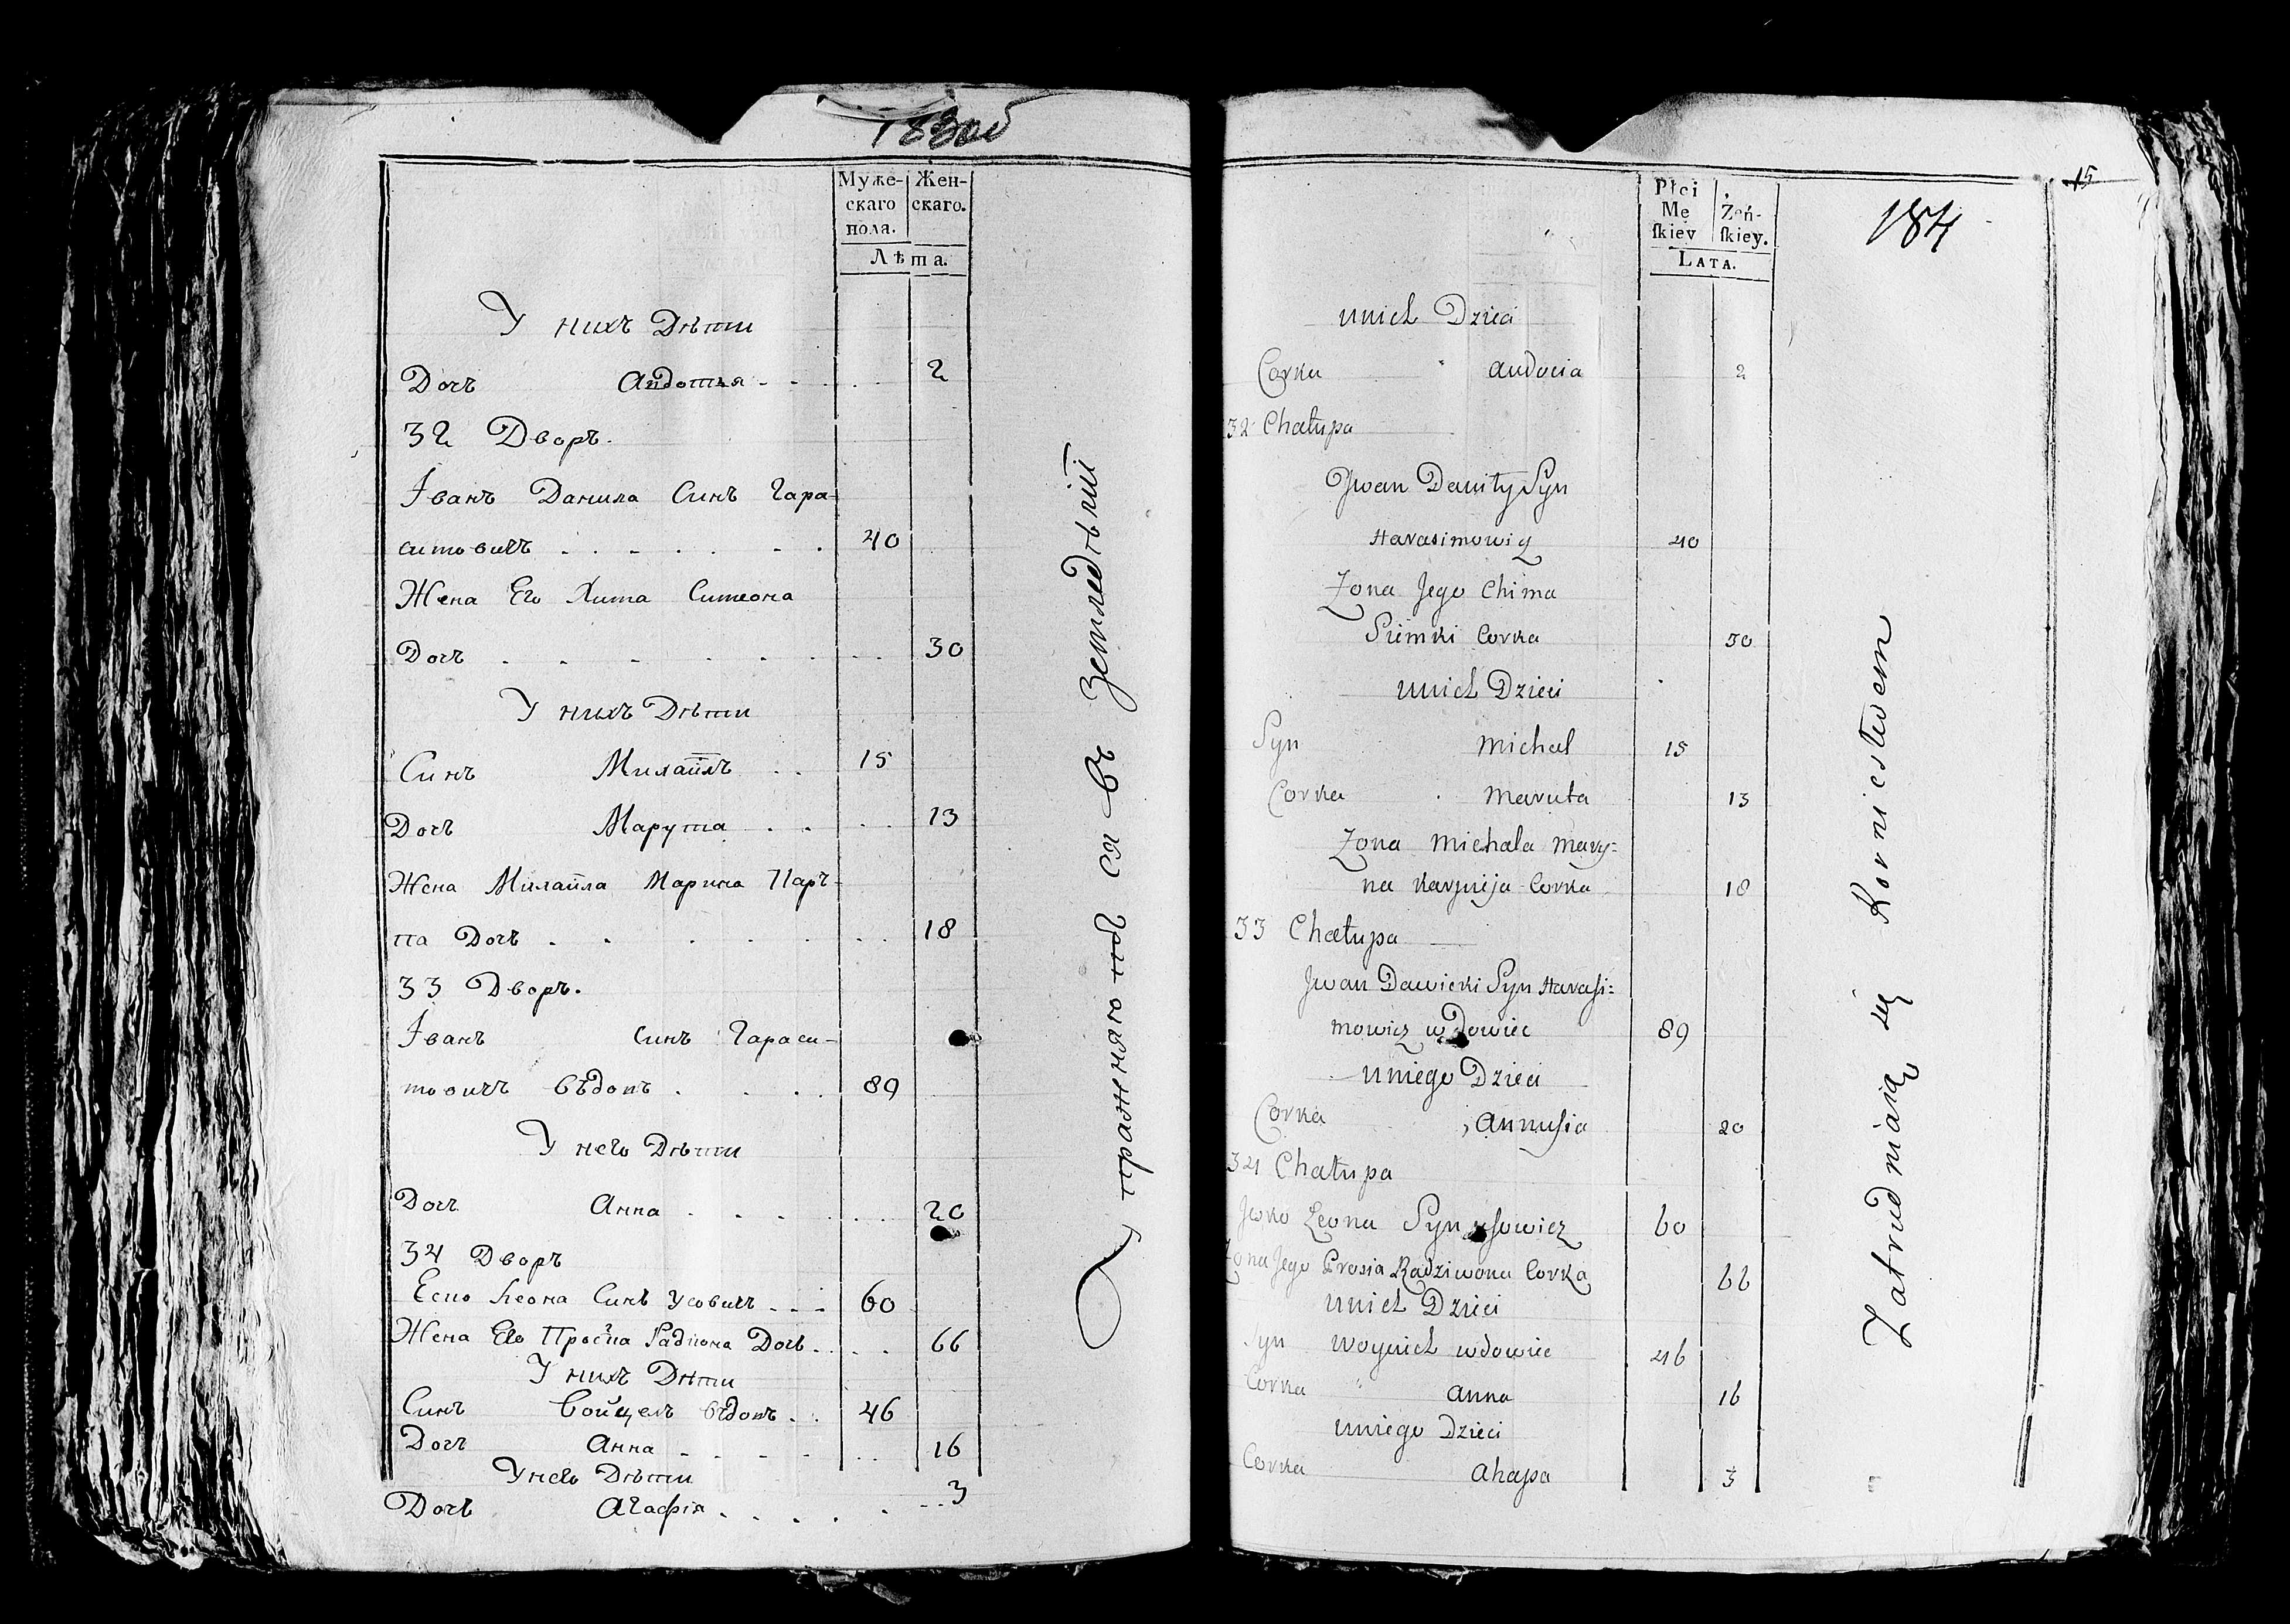 183 об
Муже-
скаго
пола.
Жен-
скаго.
Лѣта.
У нихъ Дѣти
Дочъ Авдотья 2
32 Дворъ.
Іванъ Данила Синъ Гара-
симовичъ 40
Жена Его Хима Симеона
Дочъ 30
У нихъ Дѣти
Синъ Михайлъ 15
Дочъ Марута 13
Жена Михайла Марина Парѣ-
па Дочъ 18
33 Дворъ.
Іванъ Синъ Гараси-
мовичъ вѣдовъ 89
У него Дѣти
Дочъ Анна 20
34 Дворъ
Есио Леона Синъ Усовичъ 60
Жена Его Просiа Радиона Дочъ 66
У нихъ Дѣти
Синъ Войцехъ вѣдовъ 46
Дочъ Анна 16
У него Дѣти
Дочъ Агафія 3
Упражняютъ ся въ Земледѣліи
15
184
Płci
Mę
ſkiey
Żeń-
ſkiey.
LATA.
unich Dzieci
Corka Audocia 2
32 Chałupa
Jwan Daniły Syn
Harasimowicz 40
Zona Jego Chima
Siemki Corka 30
unich Dzieci
Syn Michał 15
Corka Maruta 13
Zona Michała Mary=
na Karpieja Corka 18
33 Chałupa
Jwan Dawicki Syn Harasi=
mowicz wdowiec 89
uniego Dzieci
Corka Annusia 20
34 Chałupa
Jośko Leona Syn Usowicz 60
Zona Jego Prosia Radziwona Corka 66
unich Dzieci
Syn Woyciech wdowiec 46
Corka Anna 16
uniego Dzieci
Corka Ahapa 3
Zatrudniaią się Rornictwem